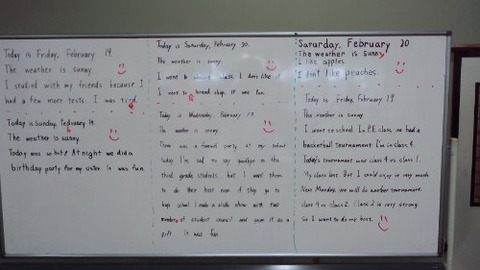 Today is Friday, February 19
The weather is sunny
I studied with my friends because I
had a few more tests. I was tired.
Today is Sunday, February 14.
The weather is sunny
Today was so hot. At night we did a
birthday party for my sister. It was fun.
Today is Saturday, February 20.
The weather is sunny.
I went to class. I don't like it
I went to bread shop. It was fun
Today is Wednesday, February 17
The weather is sunny.
There was a farewell party at my school
today. I'm sad to say goodbye to the
third grade students, but I want them
to do their best even if they go to
high school. I made a slide show with the
members of student council and gave it as a
gift. It was fun.
Saturday, February 20
The weather is sunny
I like apples.
I don't like peaches.
Today is Friday, February 19
The weather is sunny.
I went to school. In P.E class, we had a
basketball tournament. I'm in class 4.
Today's tournament was class 4 vs class 1.
My class lost. But I could enjoy it very much.
Next Monday, we will do another tournament.
class 4 vs class 2. Class 2 is very strong.
So I want to do my best.